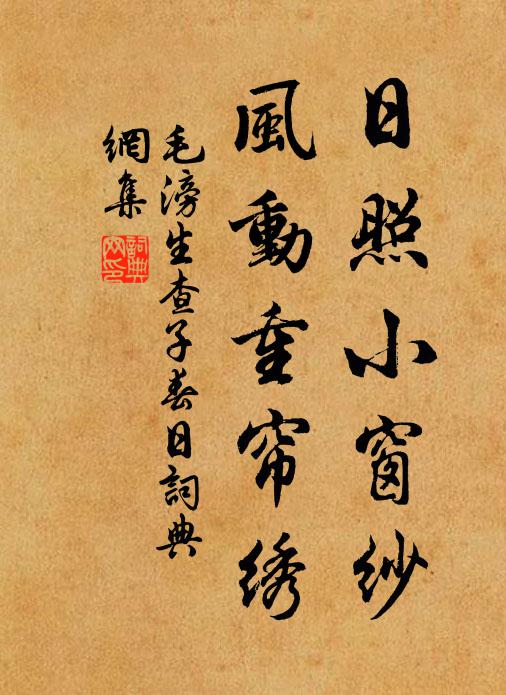 日照小窗紗
風動重帘綉
毛滂生查子春日詞典
網集
詞典
网印